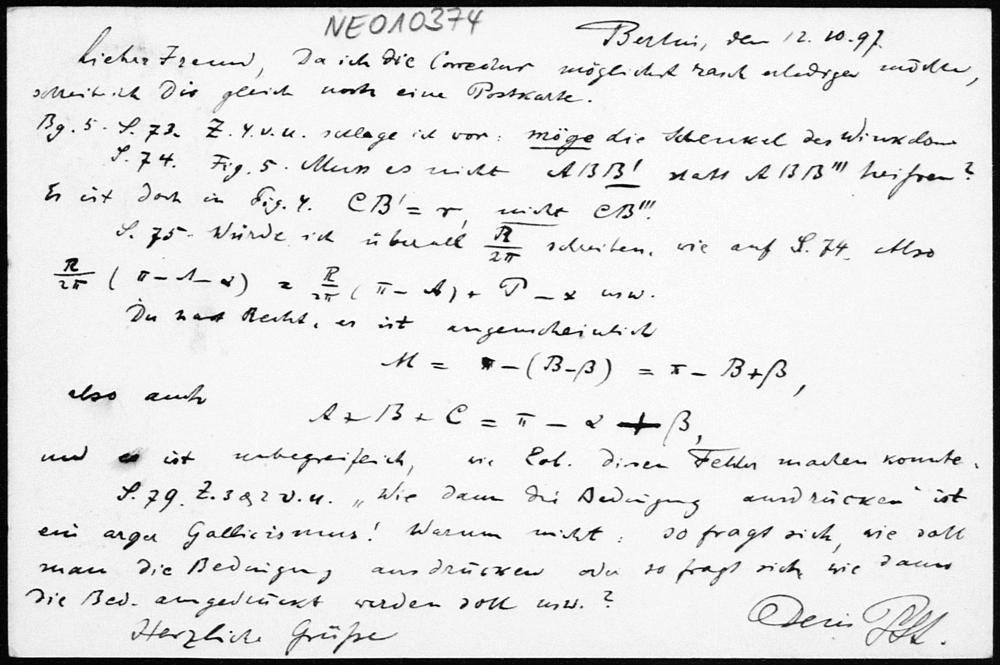 NEO10374
Berlin, den 12.10.97.
Lieber Freund, Da ich die Correctur möglichst rasch erledigen möchte,
schreib ich Dir gleich noch eine Postkarte.
Bg. 5. S. 73. Z. 4 v. u. schlage ich vor: möge die Schenkel des Winkels
S. 74. Fig. 5. Muss es nicht ABB' statt ABB''' heissen?
Es ist doch in Fig. 4. CB' = r, nicht CB'''.
S. 75. Würde ich überall R/2π schreiben, wie auf S. 74. Also
R/2π (π − A − α) = R/2π (π − A) + P − α usw.
Du hast Recht, es ist augenscheinlich
M = π − (B − β) = π − B + β,
also auch
A + B + C = π − α + β,
und es ist unbegreiflich, wie Lob. diesen Fehler machen konnte.
S. 79. Z. 3 & 2 v. u. „Wie dann die Bedingung ausdrücken" ist
ein arger Gallicismus! Warum nicht: so fragt sich, wie soll
man die Bedingung ausdrücken oder so fragt sich, wie dann
die Bed. ausgedrückt werden soll usw.?
Herzliche Grüße
Dein